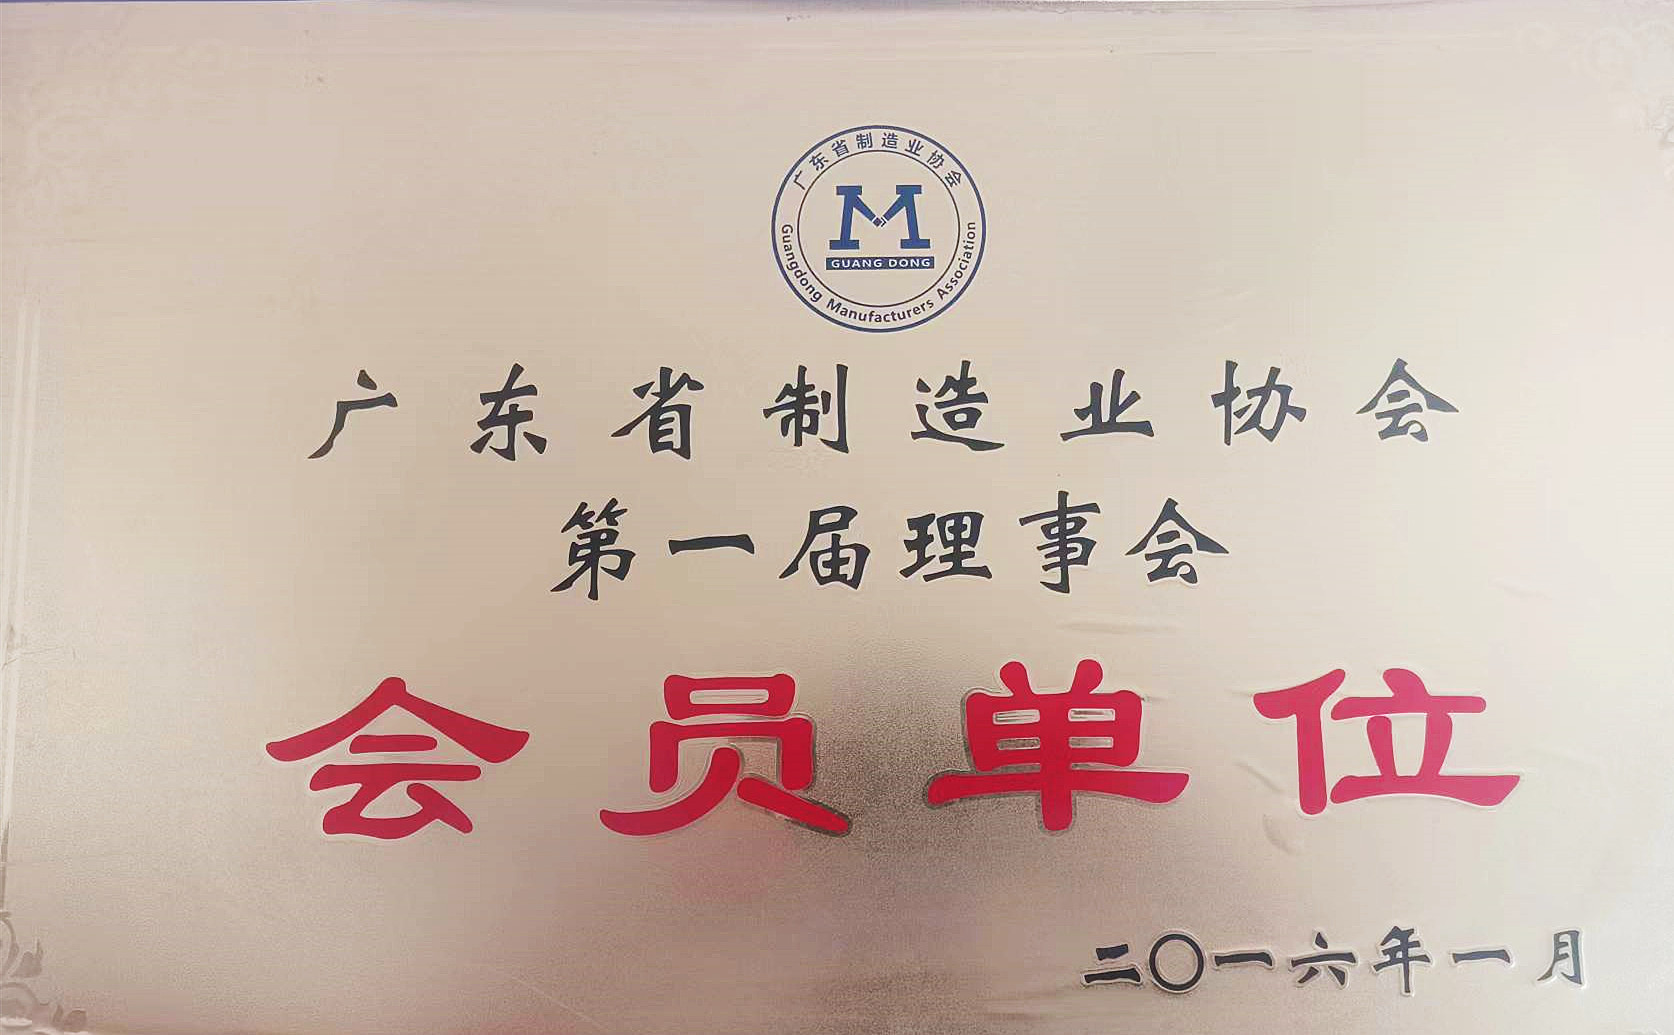 广东省制造业协会
GUANG DONG
Guangdong Manufacturers Association
广东省制造业协会
第一届理事会
会员单位
二〇一六年一月